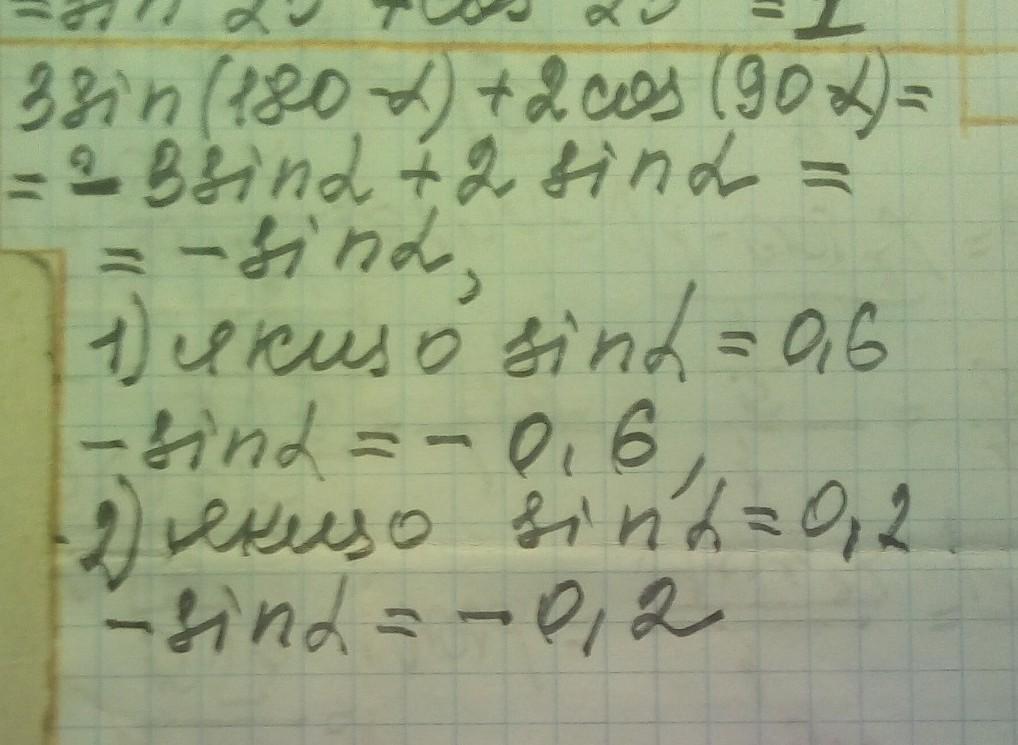 =sin 25 +cos 25 =1
3sin(180-α)+2cos(90α)=
=-3sinα+2 sinα=
=-sinα,
1) якщо sinα=0,6
-sinα=-0,6,
2) якщо sinα=0,2
-sinα=-0,2